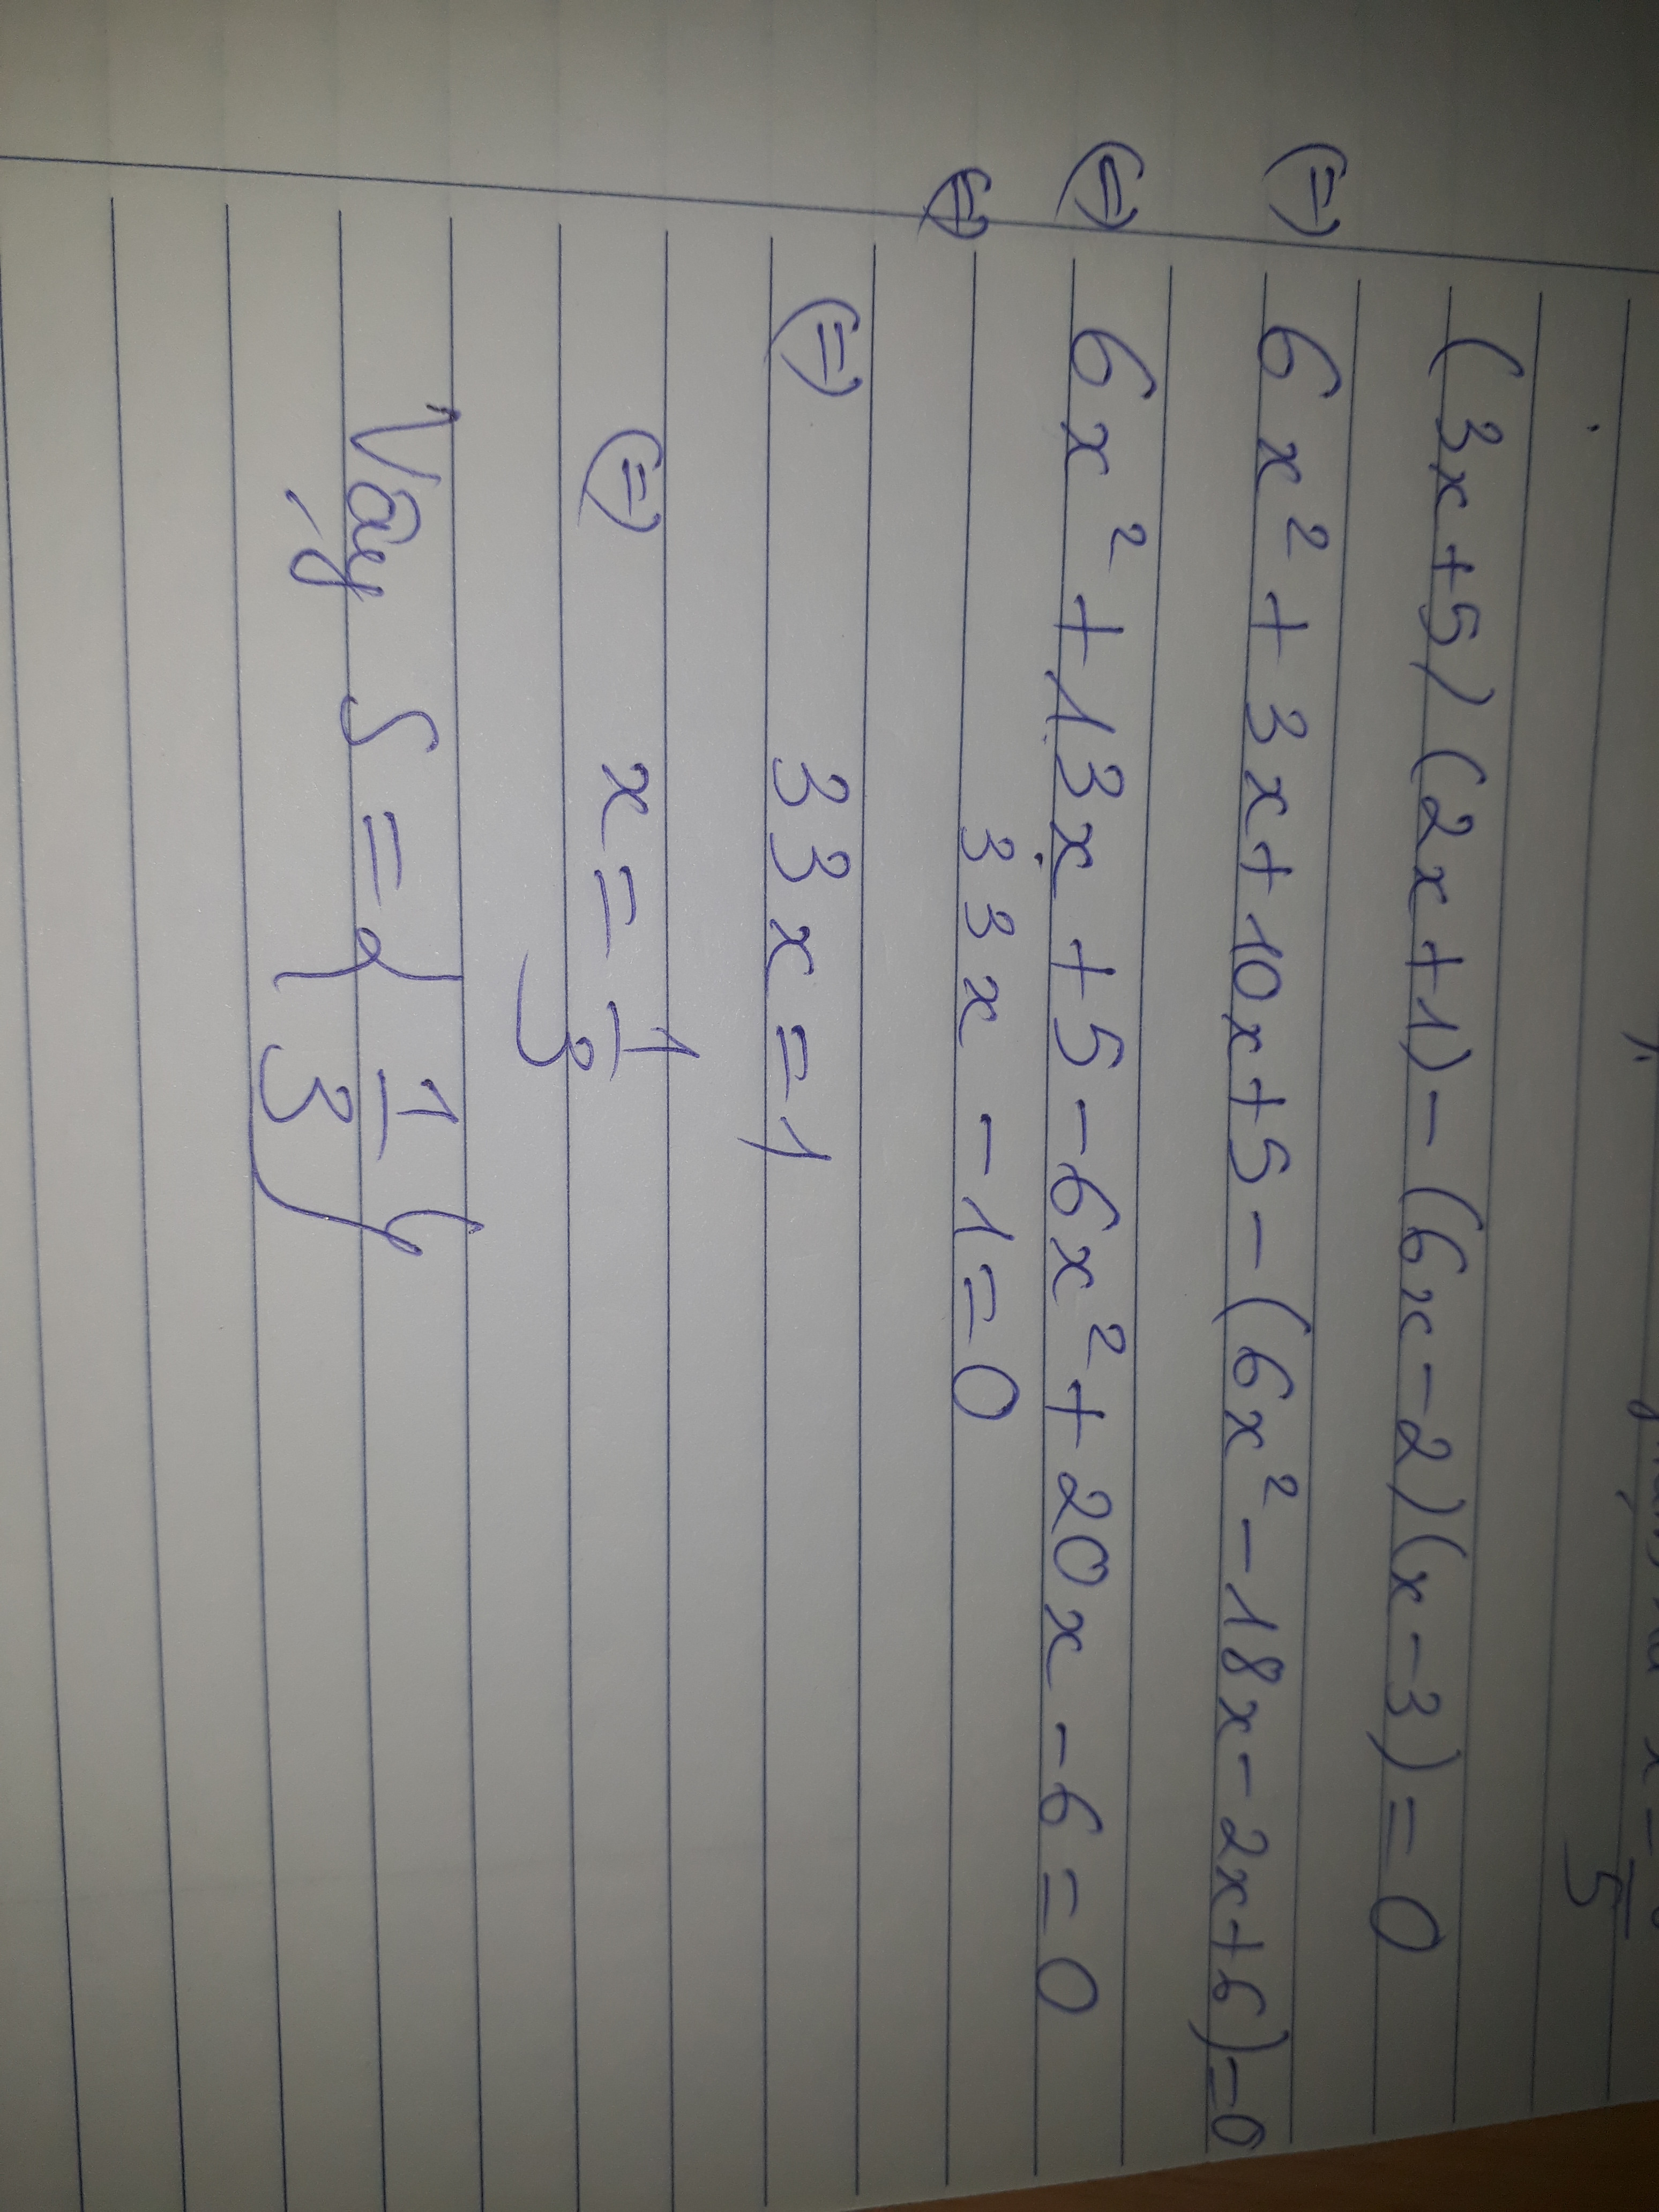 x =
5
(3x+5)(2x+1)-(6x-2)(x-3)=0
(=) 6x²+3x+10x+5-(6x²-18x-2x+6)=0
(=) 6x²+13x+5-6x²+20x-6=0
(=) 33x -1=0
(=) 33x=1
(=) x= 1/3
Vậy S={1/3}